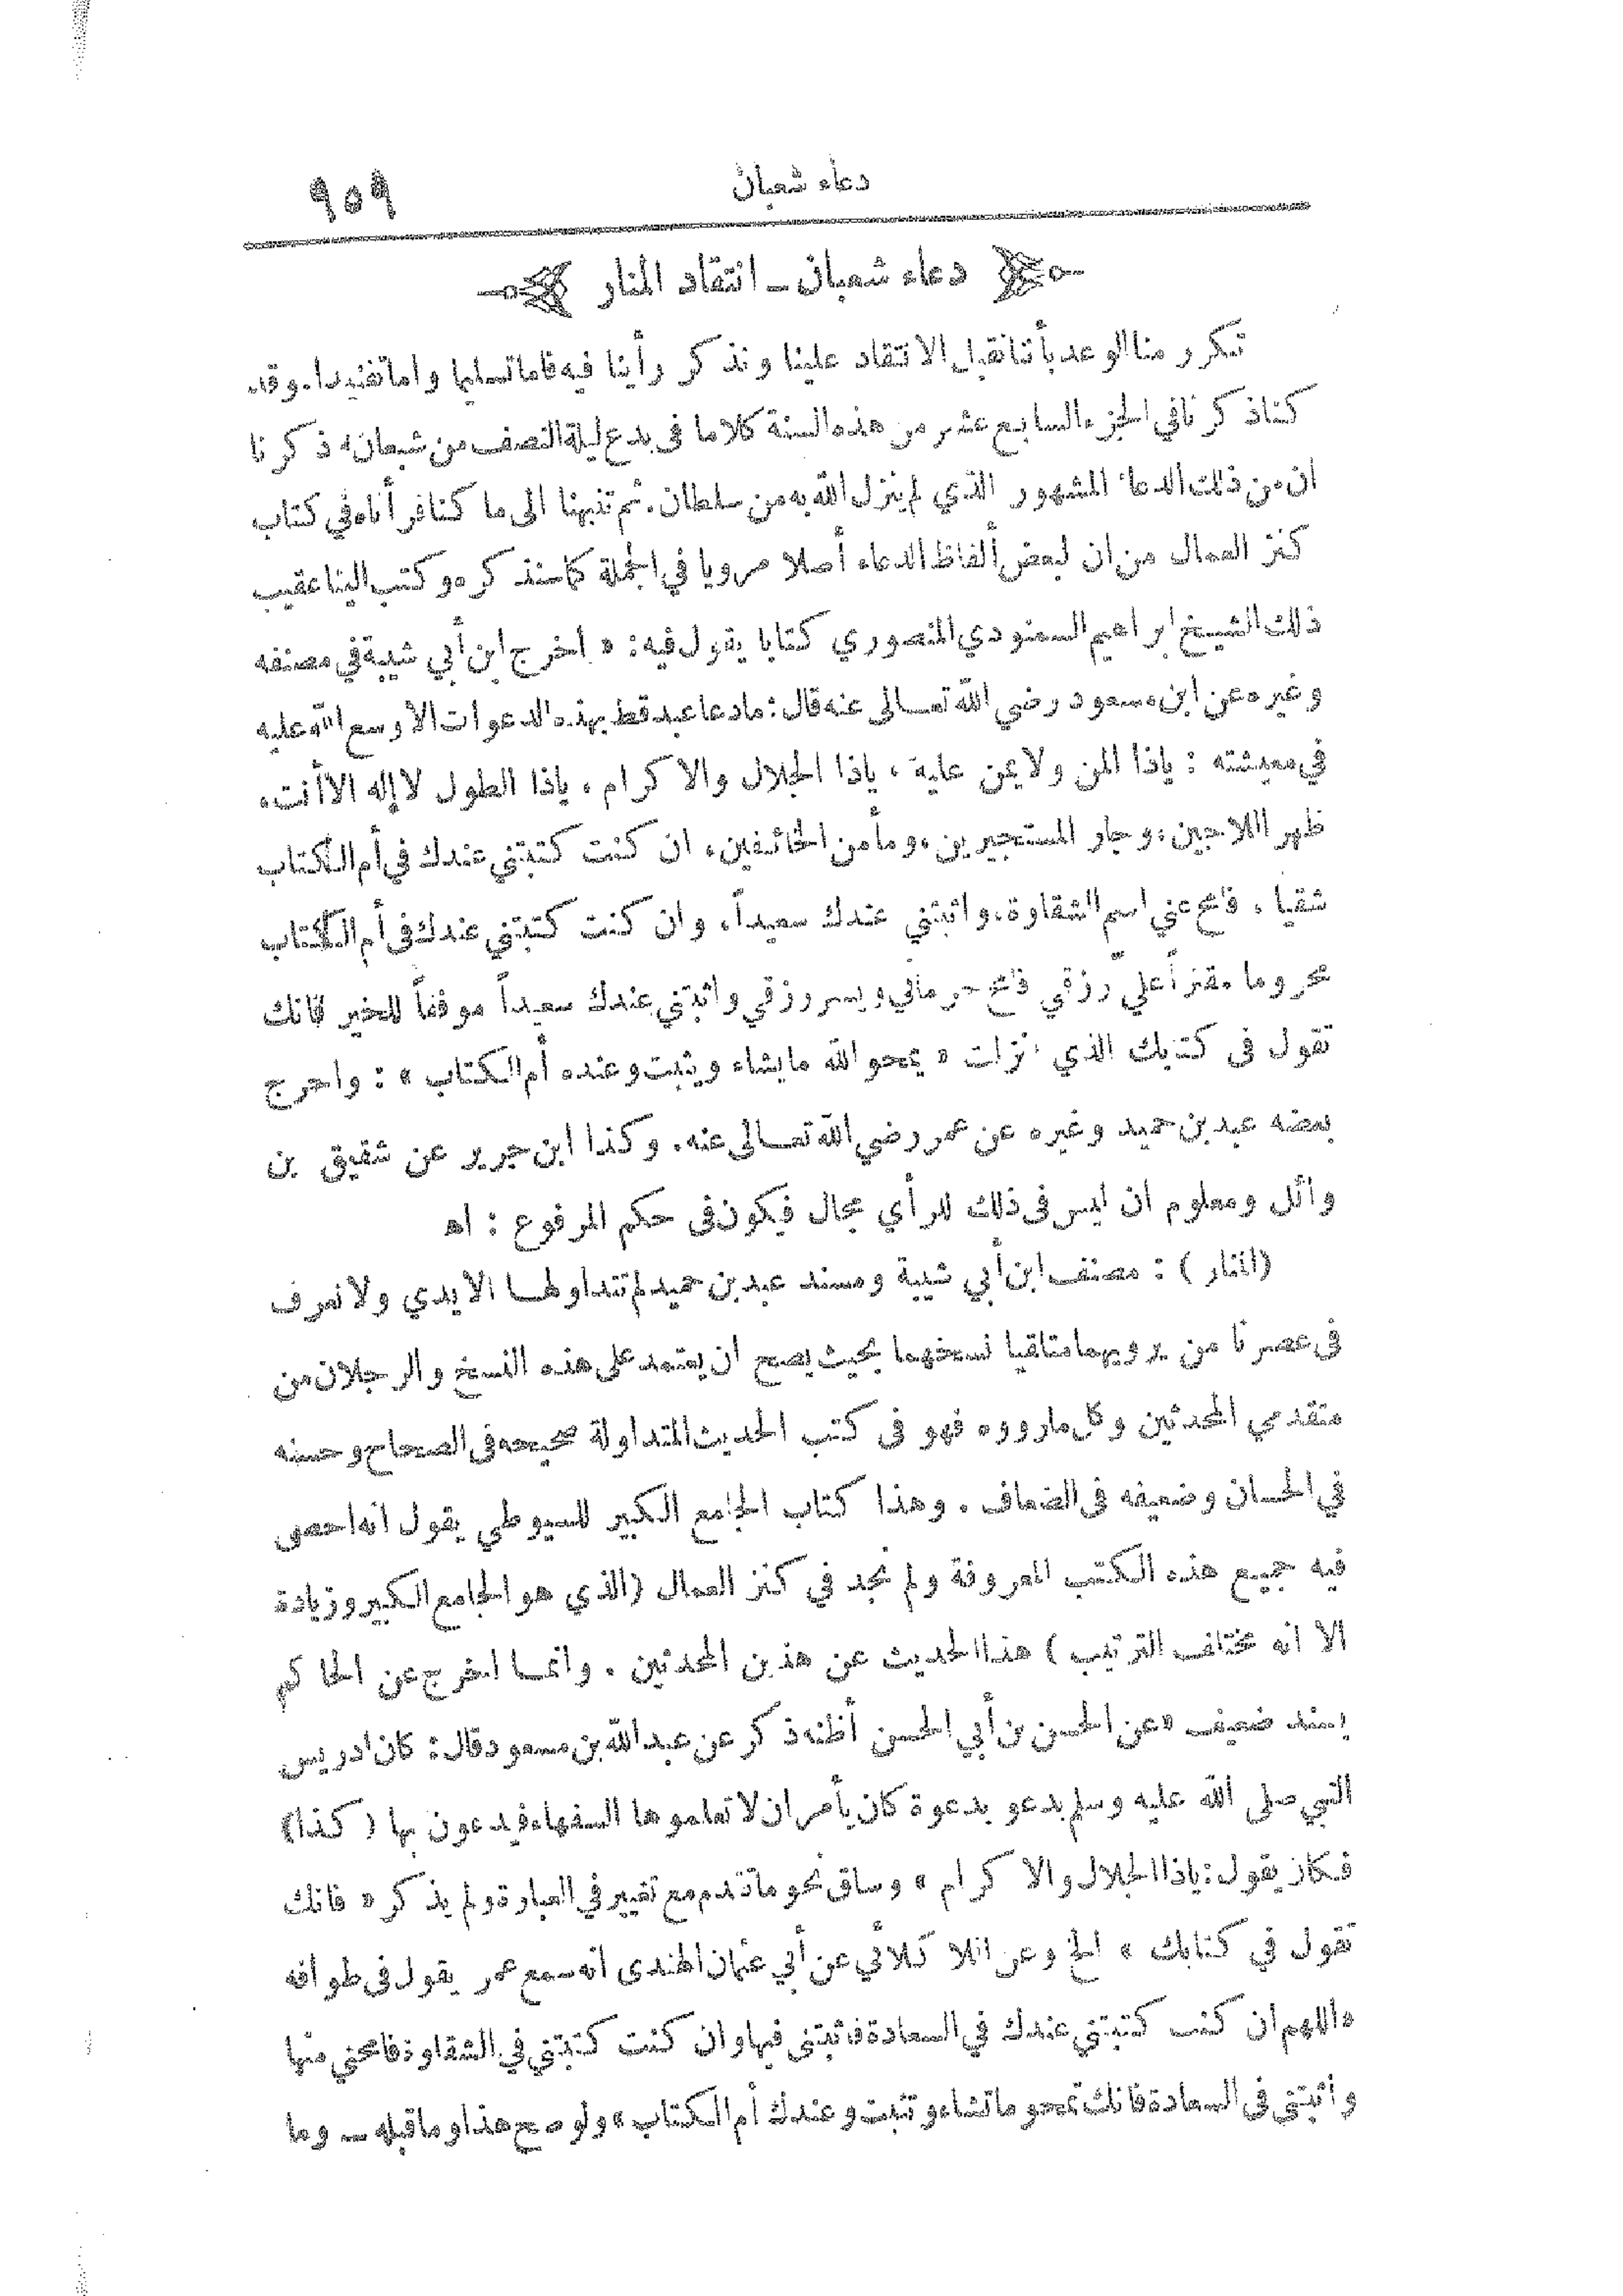 دعاء شعبان ٩٥٩
دعاء شعبان ــ انتقاد المنار
تكرر منا الوعد بأننا نقبل الانتقاد علينا ونذكر رأينا فيه فاما تسليما واما تفنيدا. وقد
كنا ذكرنا في الجزء السابع عشر من هذه السنة كلاما في بدع ليلة النصف من شعبان، ذكرنا
ان من ذلك الدعاء المشهور الذي لم ينزل الله به من سلطان. ثم تنبهنا الى ما كنا قرأناه في كتاب
كنز العمال من ان لبعض ألفاظ الدعاء أصلا مرويا في الجملة كما سنذكره وكتب الينا عقيب
ذلك الشيخ ابراهيم السمنودي المنصوري كتابا يقول فيه: « اخرج ابن أبي شيبة في مصنفه
وغيره عن ابن مسعود رضي الله تعالى عنه قال: ما دعا عبد قط بهذه الدعوات الا وسع الله عليه
في معيشته : ياذا المن ولا يمن عليه ، ياذا الجلال والاكرام ، ياذا الطول لا إله الا أنت،
ظهر اللاجين، وجار المستجيرين، ومأمن الخائفين، ان كنت كتبتني عندك في أم الكتاب
شقيا ، فامح عني اسم الشقاوة، واثبتني عندك سعيداً، وان كنت كتبتني عندك في أم الكتاب
محروما مقتراً عليّ رزقي فامح حرماني ويسر رزقي واثبتني عندك سعيداً موفقاً للخير فانك
تقول في كتابك الذي انزلت « يمحو الله ما يشاء ويثبت وعنده أم الكتاب » : واخرج
بعضه عبد بن حميد وغيره عن عمر رضي الله تعالى عنه. وكذا ابن جرير عن شقيق بن
وائل ومعلوم ان ليس في ذلك للرأي مجال فيكون في حكم المرفوع : اه
(المنار) : مصنف ابن أبي شيبة ومسند عبد بن حميد لم تتداولهما الايدي ولا نعرف
في عصرنا من يرويهما متلقيا نسخهما بحيث يصح ان يعتمد على هذه النسخ والرجلان من
متقدمي المحدثين وكل ما رووه فهو في كتب الحديث المتداولة صحيحه في الصحاح وحسنه
في الحسان وضعيفه في الضعاف . وهذا كتاب الجامع الكبير للسيوطي يقول انه احصى
فيه جميع هذه الكتب المعروفة ولم نجد في كنز العمال (الذي هو الجامع الكبير وزيادة
الا انه مختلف الترتيب) هذا الحديث عن هذين المحدثين . وانما اخرج عن الحاكم
بسند ضعيف «عن الحسن بن أبي الحسن أظنه ذكر عن عبد الله بن مسعود قال: كان ادريس
النبي صلى الله عليه وسلم يدعو بدعوة كان يأمر ان لا تعلموها السفهاء فيدعون بها (كذا)
فكان يقول: ياذا الجلال والاكرام » وساق نحو ما تقدم مع تغيير في العبارة ولم يذكر « فانك
تقول في كتابك » الخ وعن اللالكائي عن أبي عثمان الهندى انه سمع عمر يقول في طوافه
«اللهم ان كنت كتبتني عندك في السعادة فاثبتني فيها وان كنت كتبتني في الشقاوة فامحني منها
واثبتني في السعادة فانك تمحو ما تشاء وتثبت وعندك أم الكتاب» ولو صح هذا وما قبله ــ وما